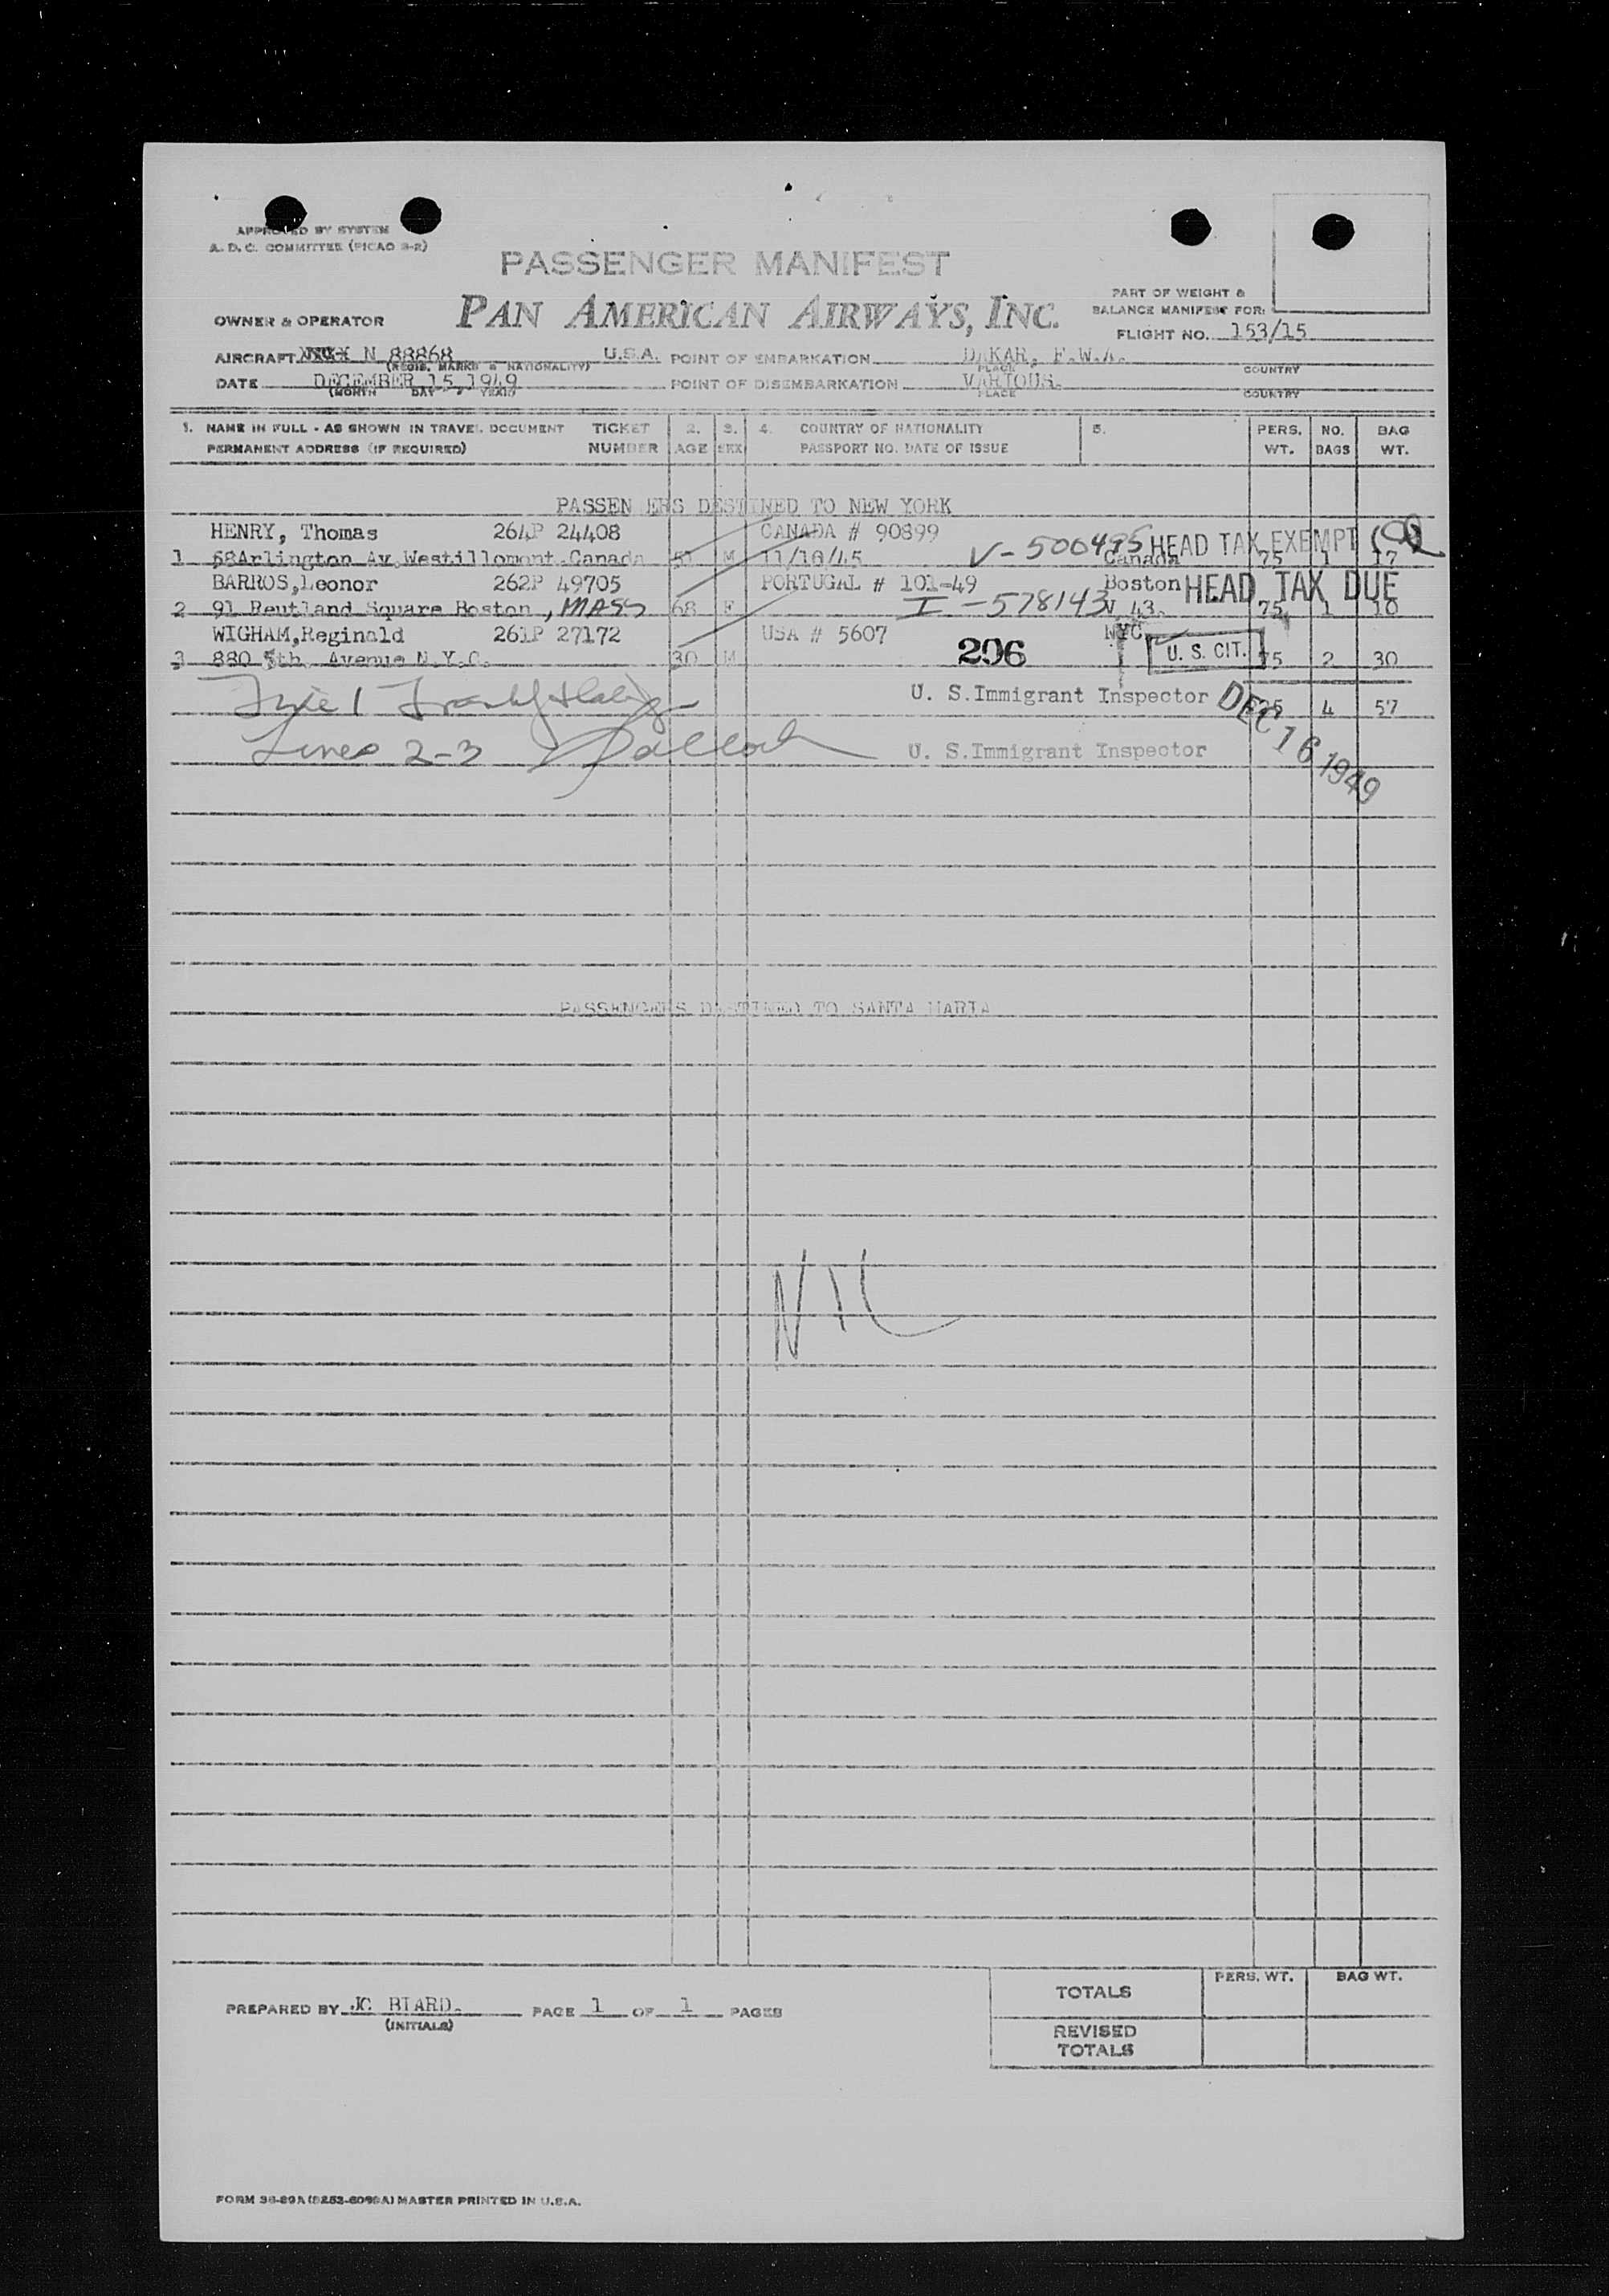 APPROVED BY SYSTEM
A. D. C. COMMITTEE (PICAO 3-R)
PASSENGER MANIFEST
PAN AMERICAN AIRWAYS, INC.
OWNER & OPERATOR
PART OF WEIGHT &
BALANCE MANIFEST FOR:
FLIGHT NO. 153/15
AIRCRAFT N 88868 U.S.A. POINT OF EMBARKATION DAKAR, F.W.A.
(REGIS. MARKS & NATIONALITY) PLACE COUNTRY
DATE DECEMBER 15, 1949 POINT OF DISEMBARKATION VARIOUS.
(MONTH DAY YEAR) PLACE COUNTRY
1. NAME IN FULL - AS SHOWN IN TRAVEL DOCUMENT TICKET 2. 3. 4. COUNTRY OF NATIONALITY 5. PERS. NO. BAG
PERMANENT ADDRESS (IF REQUIRED) NUMBER AGE SEX PASSPORT NO. DATE OF ISSUE WT. BAGS WT.
PASSEN ERS DESTINED TO NEW YORK
HENRY, Thomas 264P 24408 CANADA # 90899
V-500495 HEAD TAX EXEMPT
1 68Arlington Av.Westillomont.Canada 51 M 11/10/45 Canada 75 1 17
BARROS,Leonor 262P 49705 PORTUGAL # 101-49 Boston HEAD TAX DUE
2 91 Reutland Square Boston, MASS 68 F I-578143 43. 75 1 10
WIGHAM,Reginald 261P 27172 USA # 5607 NYC
3 880 5th Avenue N.Y.C. 30 M 206 U. S. CIT. 75 2 30
Line 1 U. S.Immigrant Inspector 4 57
DEC 16 1949
Lines 2-3 U. S.Immigrant Inspector
PASSENGERS DESTINED TO SANTA MARIA
NIL
PREPARED BY JC BIARD. PAGE 1 OF 1 PAGES
(INITIALS)
PERS. WT. BAG WT.
TOTALS
REVISED
TOTALS
MASTER PRINTED IN U.S.A.